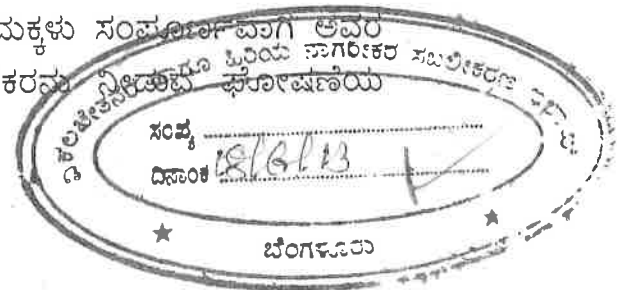 ಮಕ್ಕಳು ಸಂಪೂರ್ಣವಾಗಿ ಅವರ
ನೀಡುವ ಘೋಷಣೆಯ
ಹಿರಿಯ ನಾಗರೀಕರ ಸಬಲೀಕರಣ
ಸಂಖ್ಯೆ
ದಿನಾಂಕ 18/6/13
ಬೆಂಗಳೂರು